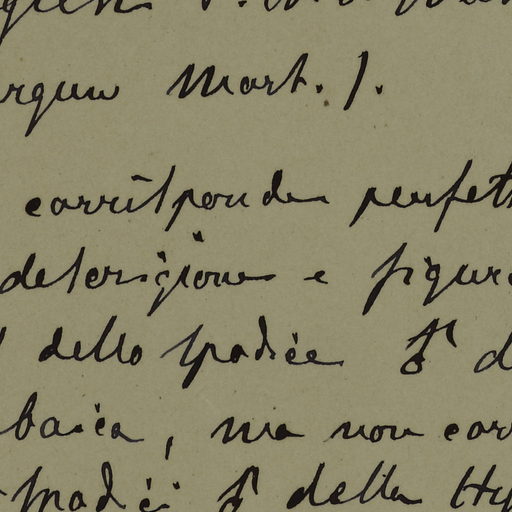 Mart.).
corrisponde perfett
descrizione e figura
dello spadice ♂ d
baica, ma non cor
spadici ♂ della Hy